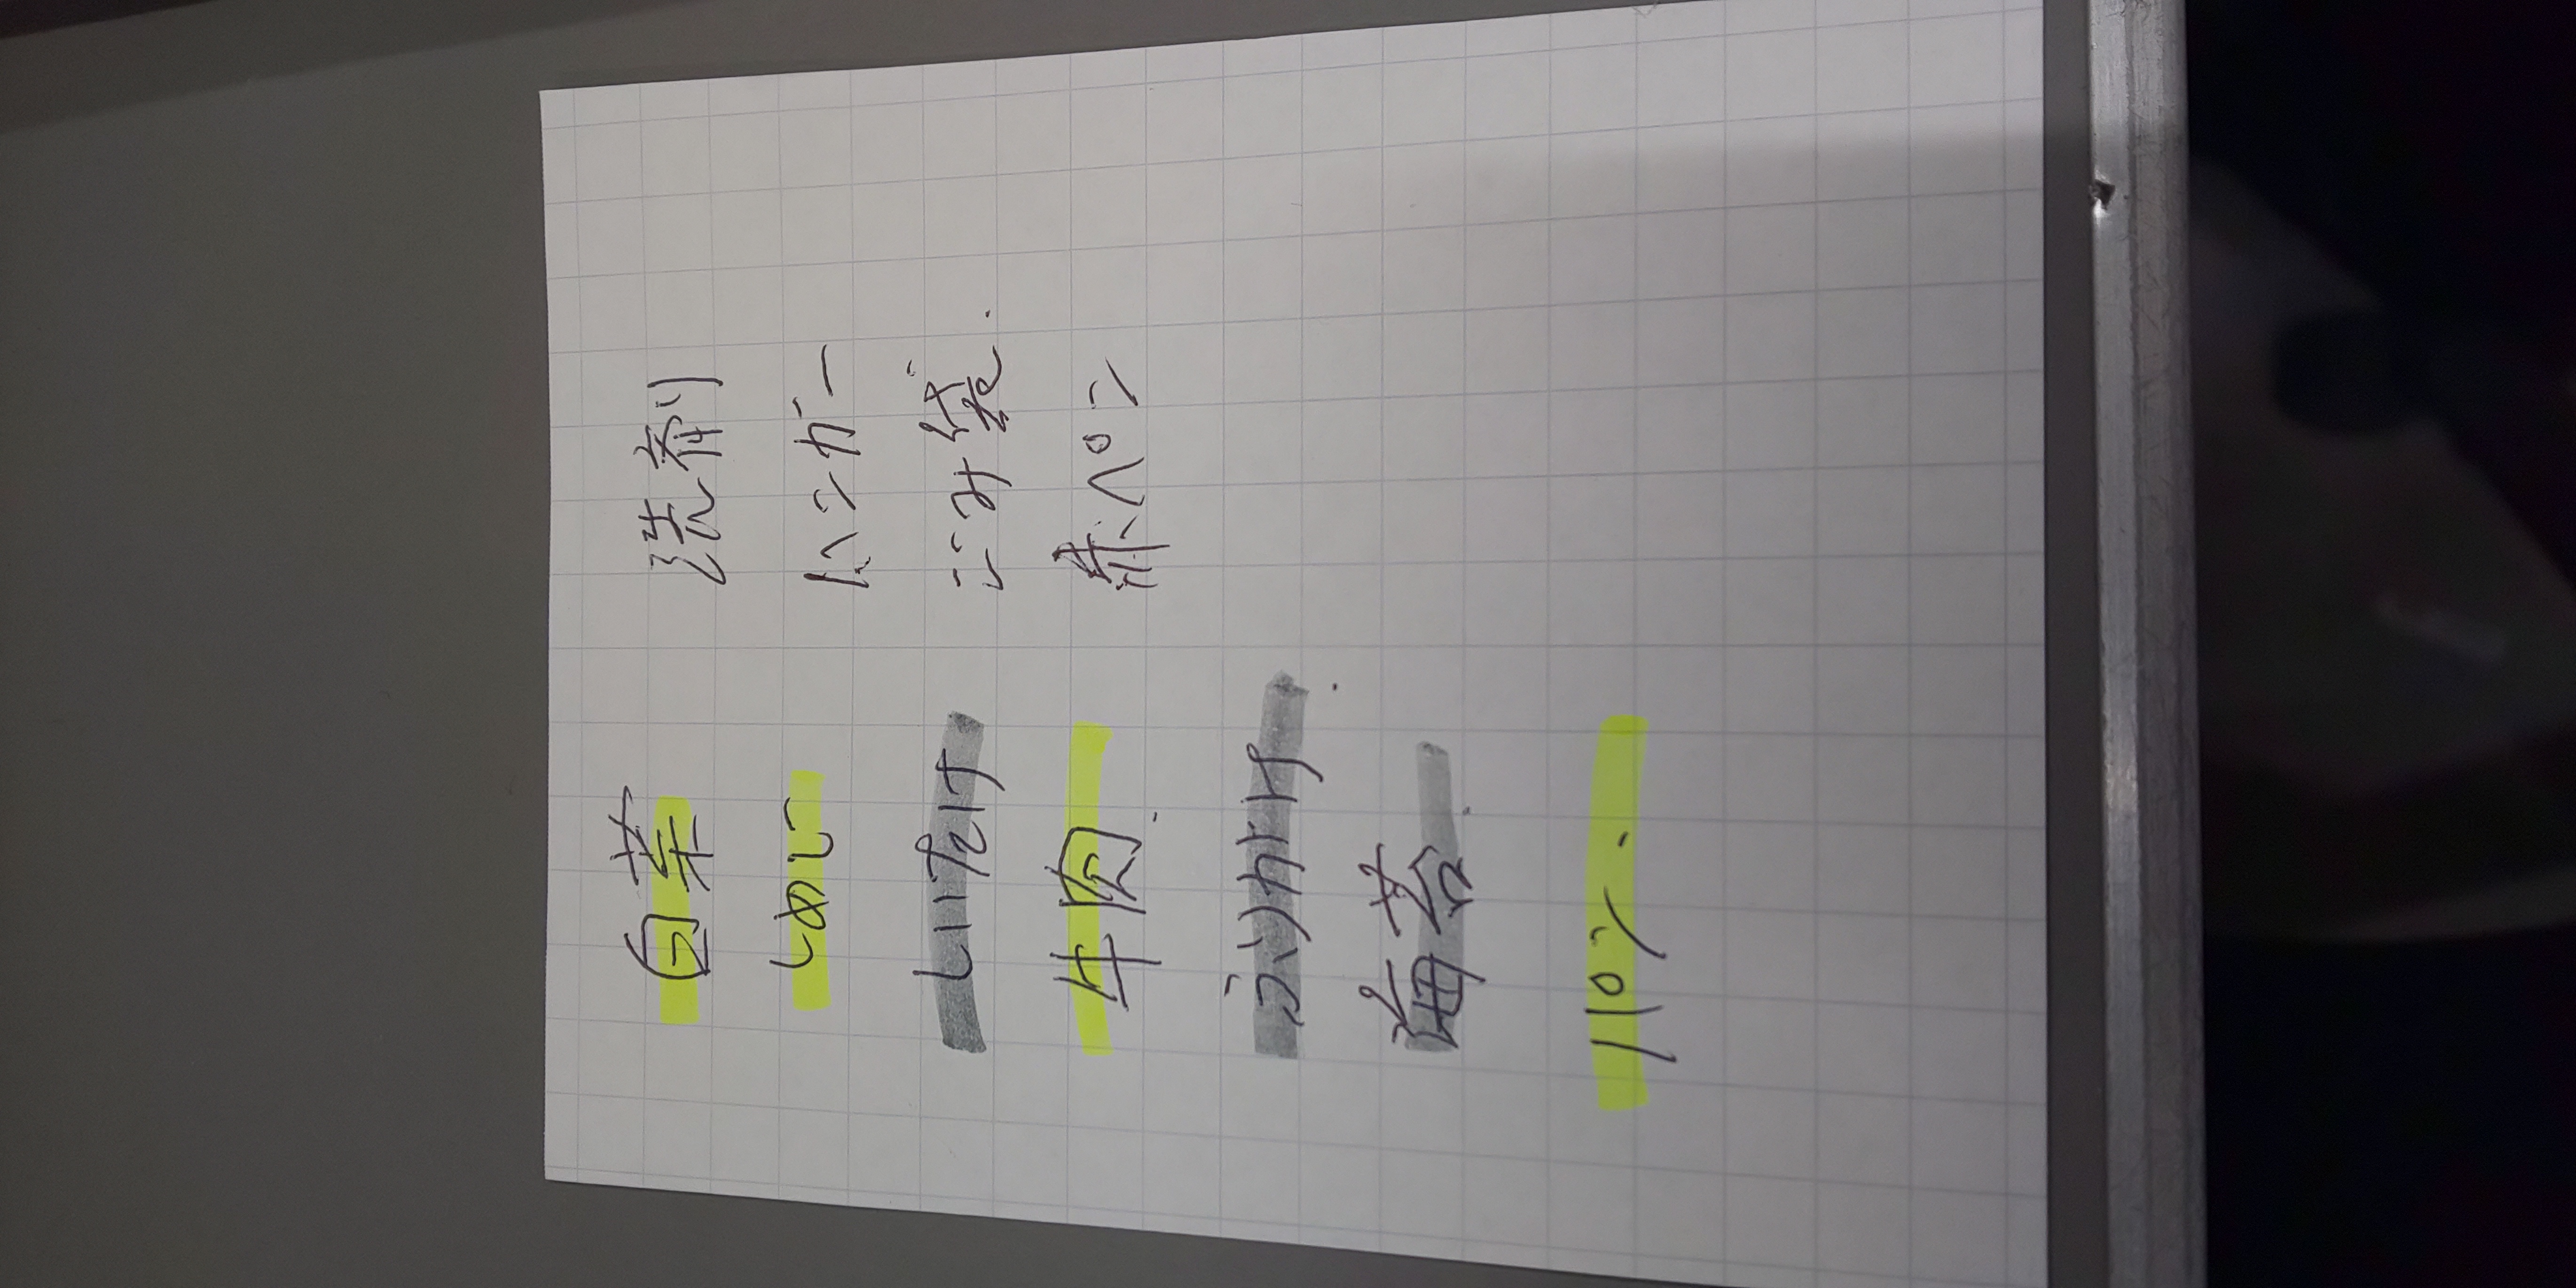 白菜
しめじ
しいたけ
牛肉.
ふりかけ.
海苔.
パン.
洗剤
ハンガー
ごみ袋.
赤ペン